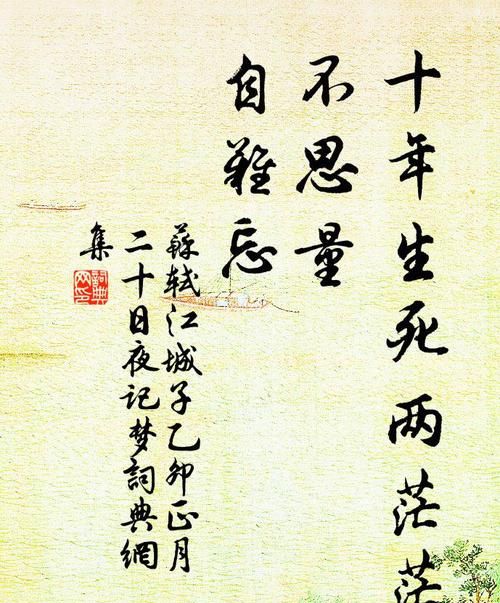 十年生死两茫茫
不思量
自難忘
蘇軾江城子乙卯正月
二十日夜记梦詞典網
集
詞典网印